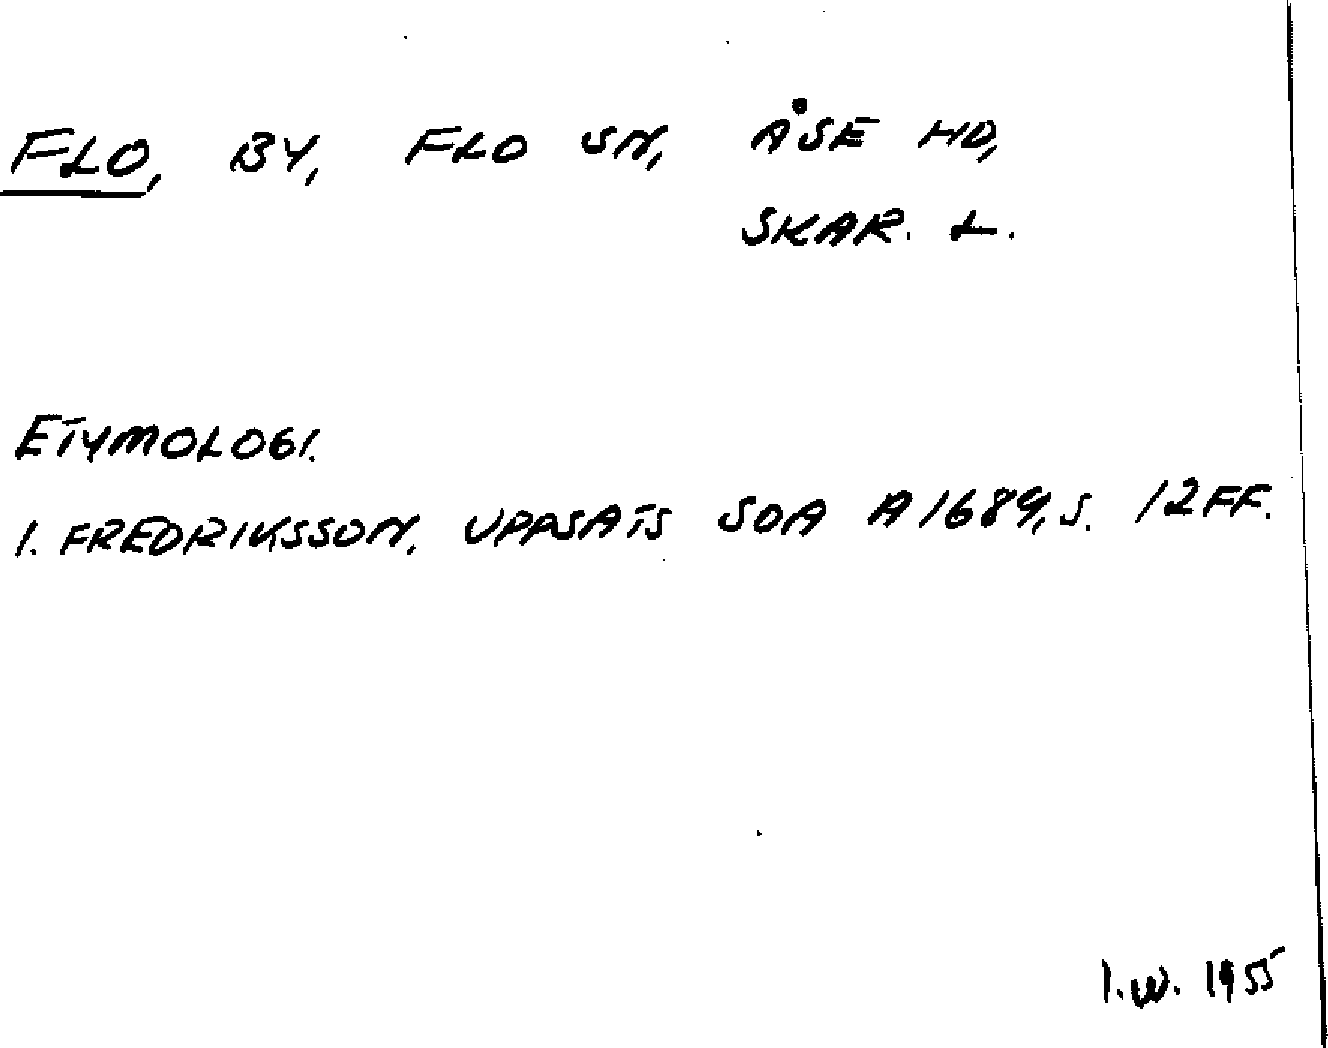 FLO, BY, FLO SN, ÅSE HD,
SKAR. L.
ETYMOLOGI.
I. FREDRIKSSON, UPPSATS SOA A 1689, S. 12 FF.
I.W. 1955